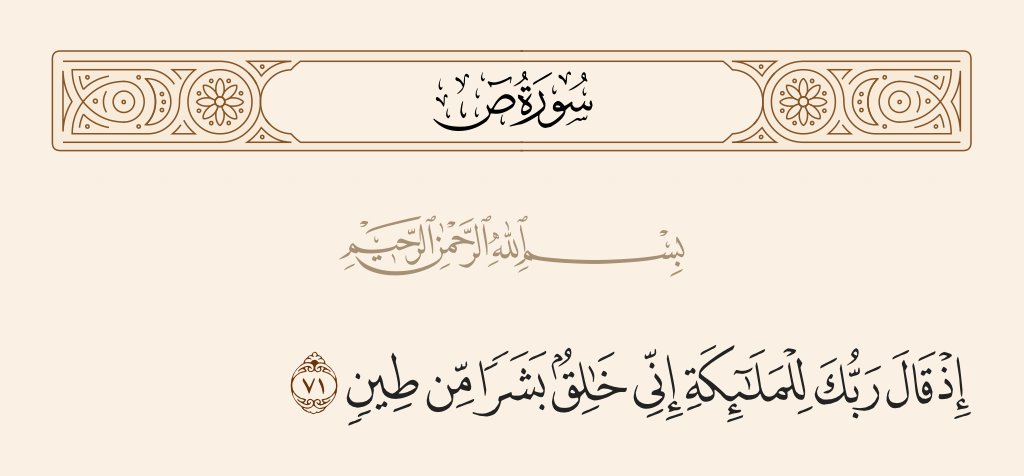 سُورَةُ صٓ
بِسْمِ ٱللَّهِ ٱلرَّحْمَٰنِ ٱلرَّحِيمِ
إِذْ قَالَ رَبُّكَ لِلْمَلَٰٓئِكَةِ إِنِّى خَٰلِقٌۢ بَشَرًا مِّن طِينٍ ٧١